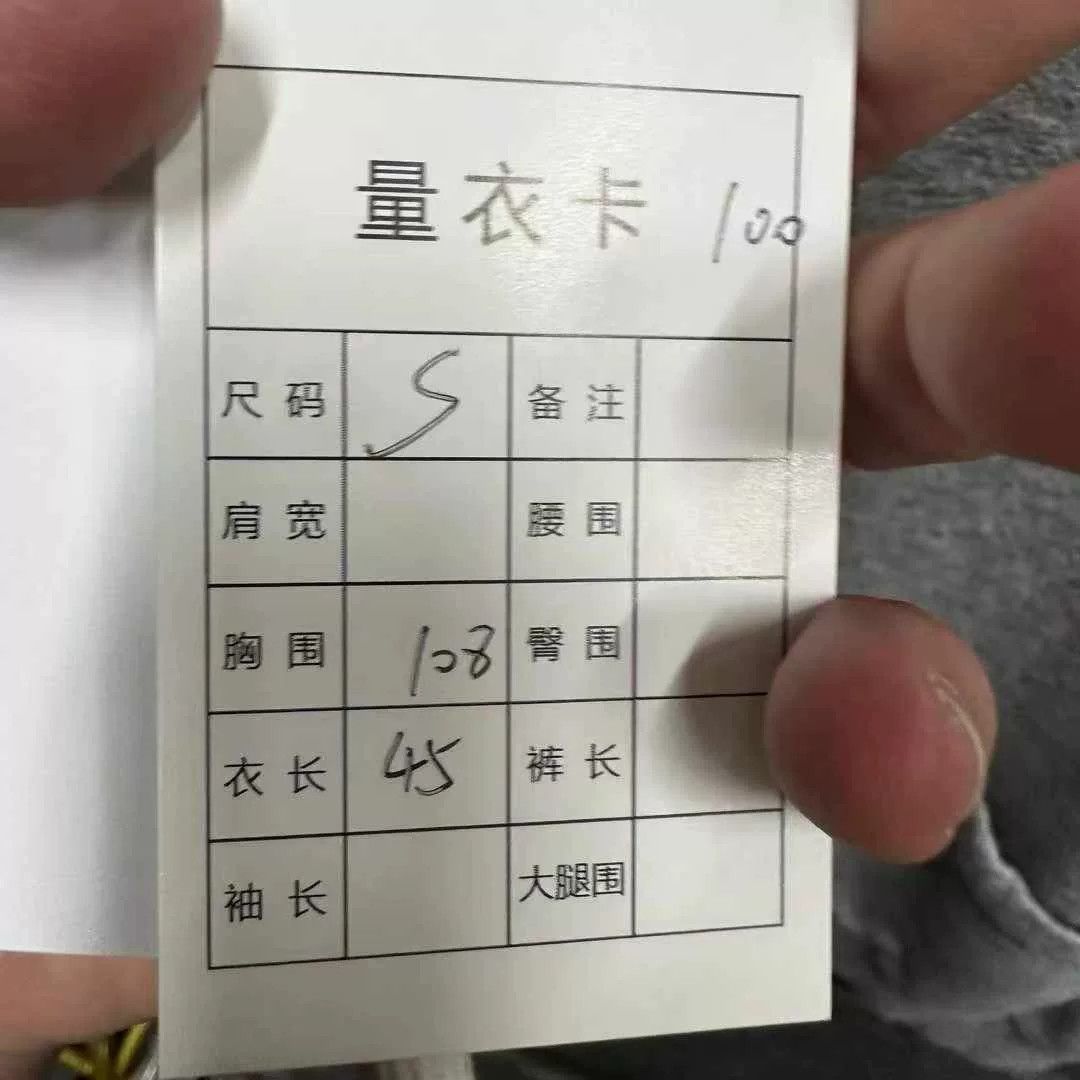 量衣卡 100
尺码 S 备注
肩宽 腰围
胸围 108 臀围
衣长 45 裤长
袖长 大腿围